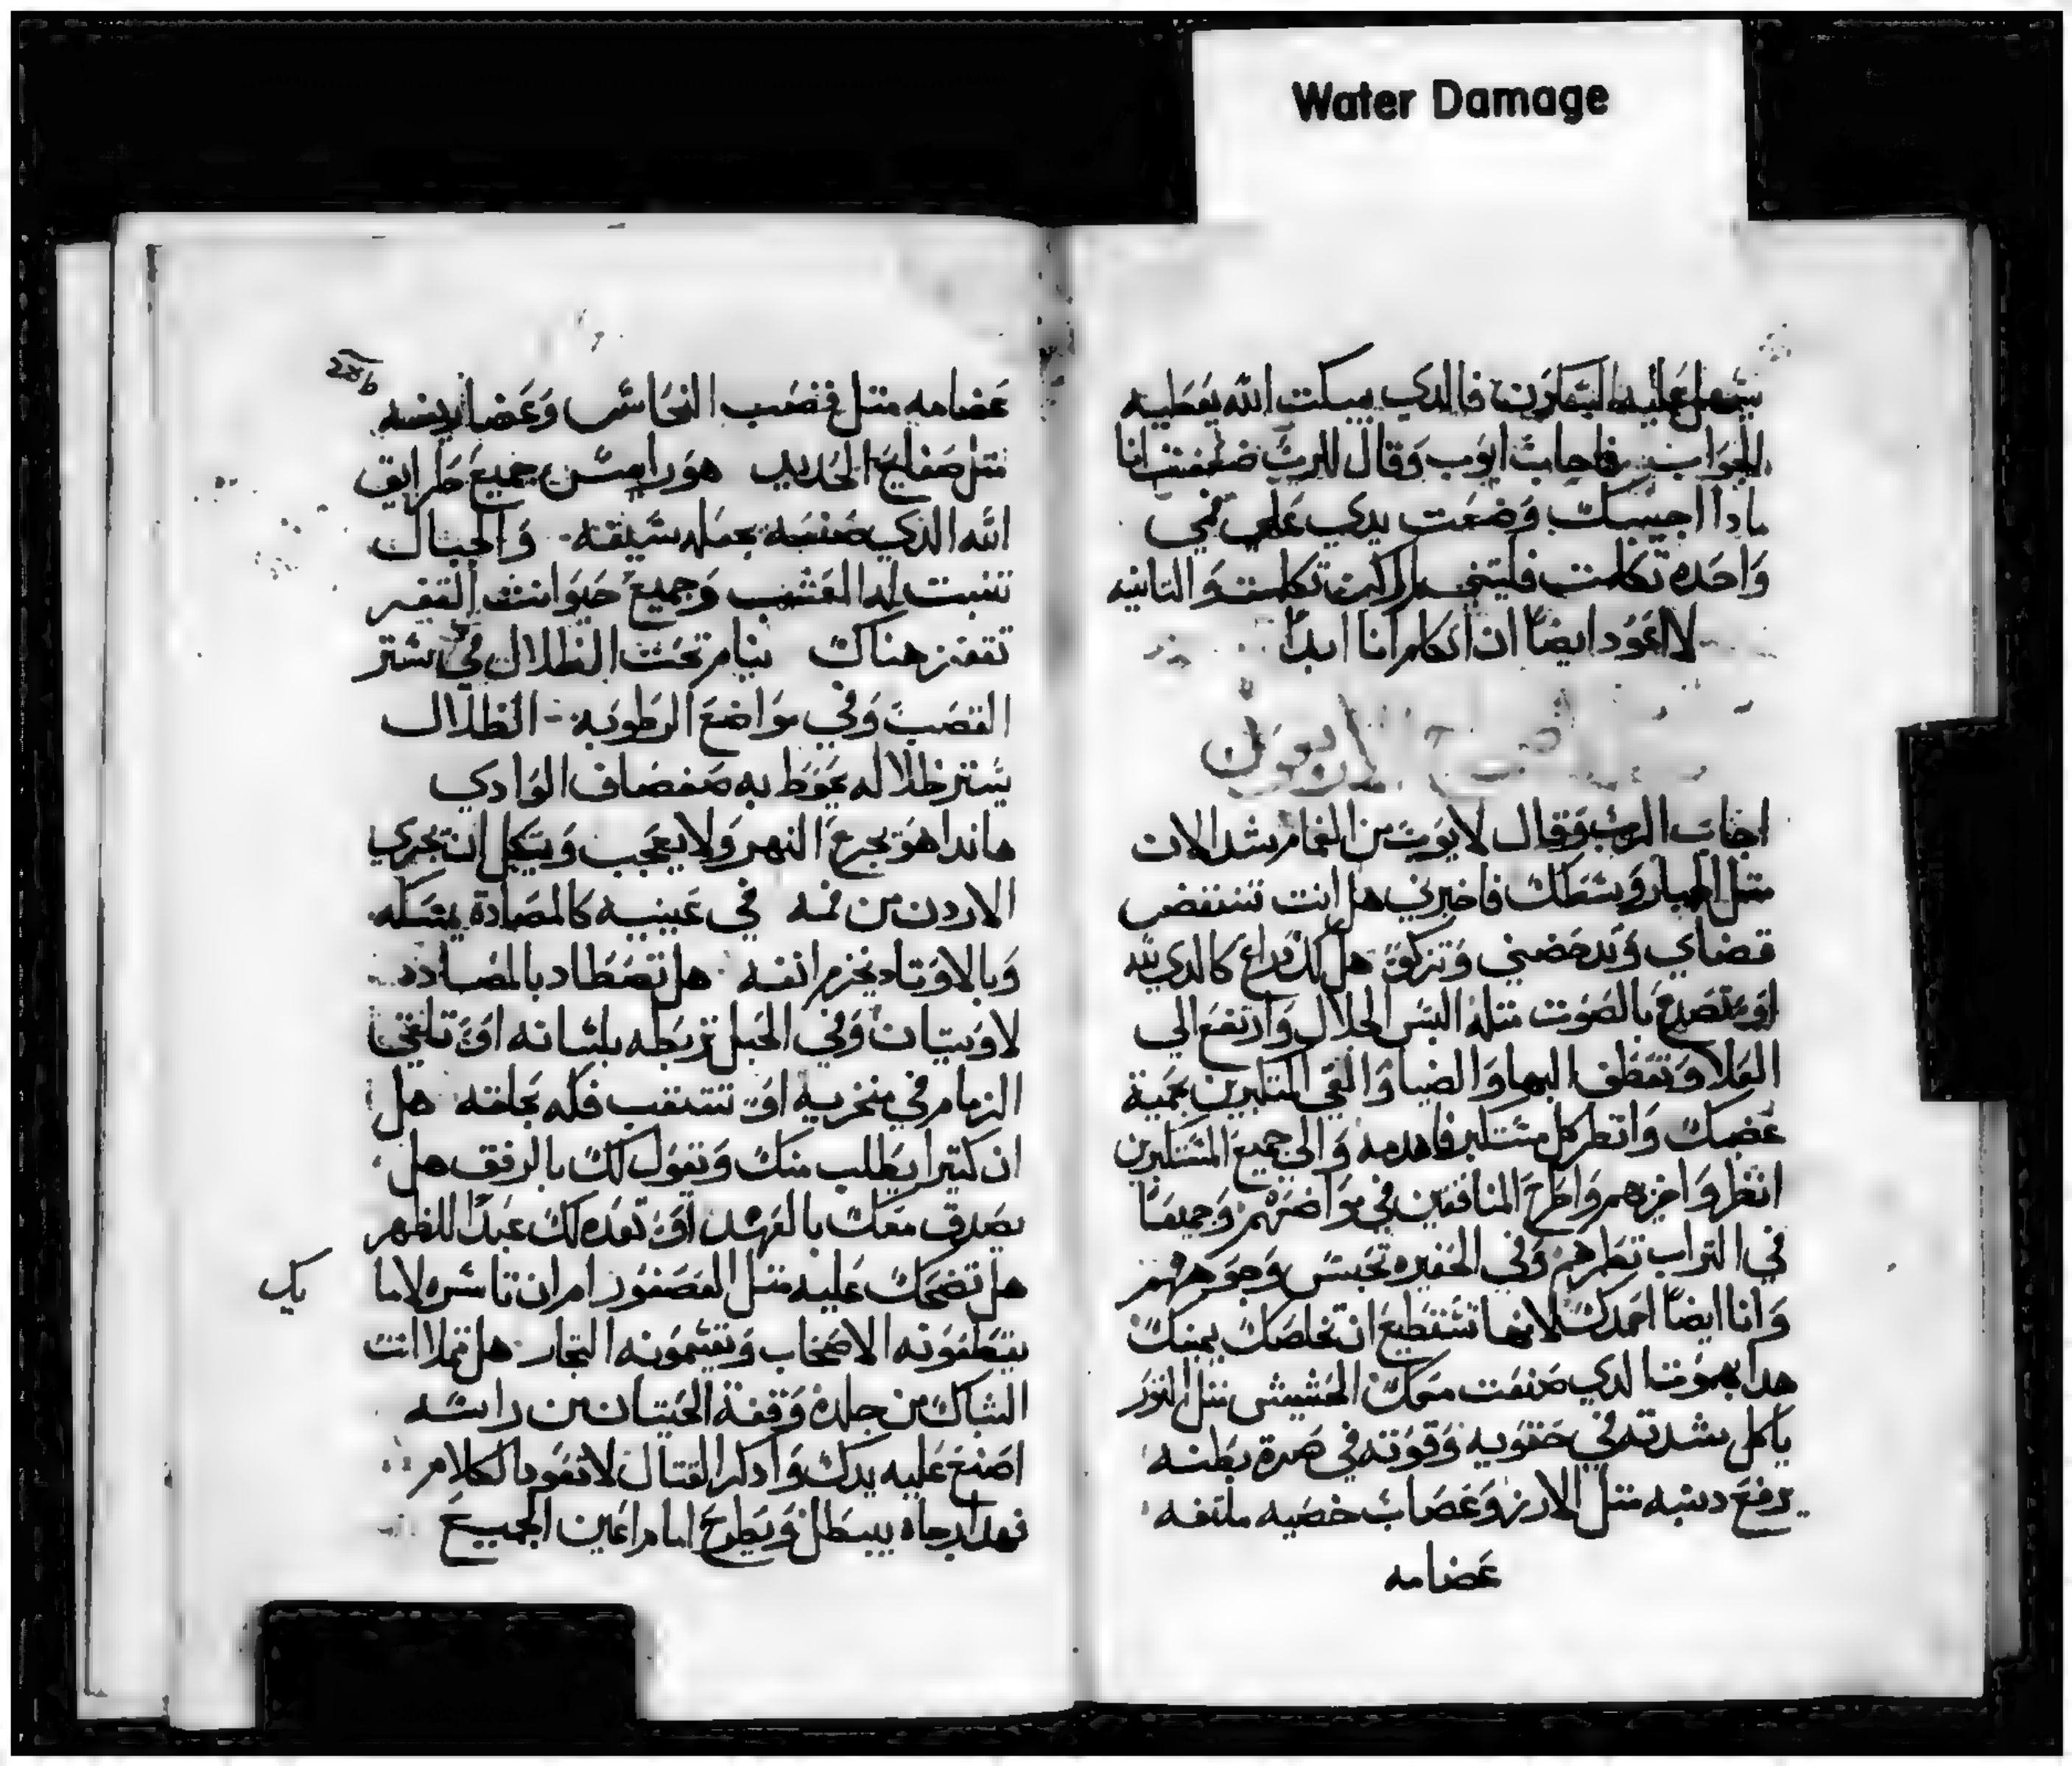 Water Damage
فالدي يبكت الله يعطيه
الجواب فاجاب ايوب وقال للرب ضعفت انا
مادا اجيبك وضعت يدي علي فمي
واحده تكلمت فليتني تكلمت والتانيه
لا اعود ايضا ان اتكلم انا ابدا
اجاب الرب وقال لايوب من الغمام شد الان
متل الجبار وسطك فاخبرني هل انت تنتقض
قضاي وتدحضني وتزكو هل لك دراع كالدي لله
او تصدع بالصوت متله البس الجلال وارتفع الي
العلا وتغطف البها والضيا والقي المتكبرين بحمية
غضبك وانظر كل متكبر فاهدمه والي جميع المتكبرين
انظر واخزهم واطرح المنافقين في مواضعهم وجميعا
في التراب تطرهم وفي الحفيره تحبس وجوههم
وانا ايضا احمدك لانها تستطيع ان تخلصك يمينك
هدا بهموتا لدي صنعت معك الحشيش متل التور
ياكل شدته في حقويه وقوته في صرة بطنه
يرفع دنبه متل الارز وعصاب خصيه ملتفه
عضامه
عضامه متل قصب النحاس وعضا
متل صفايح الحديد هو راس جميع طرايق
الله الدي صنعه بعمله سيفه والجبال
تنبت له العشب وجميع حيوانت القفر
تقفز هناك ينام تحت الظلال في ستر
القصب وفي مواضع الرطوبه الظلال
يستر ظلاله يحوط به صفصاف الوادي
هاندا هو يجرع النهر ولا يعجب ويتكل ان يجري
الاردن من فمه في عينيه كالمصادة يمسكه
وبالاوتاد يخزم انفه هل تصطاد بالمصاده
لاويتان وفي الحبل تربطه بلسانه او تلقي
الزمام في منخريه او تتقب فكه بحلقه هل
ان كتيرا يطلب منك وتقول لك بالرفق هل
يصدق معك بالعهد او تعده لك عبدا للظهر
هل تضحك عليه متل العصفور ام ان تاسره لاما
يك
الاصحاب وتقسمونه التجار هل تملا انت
الشباك من جلده وقفة الحيتان من راسه
اصنع عليه يدك وادكر القتال لا تعود بالكلام
فهدا رجاه يبطل ويطرح امام اعين الجميع